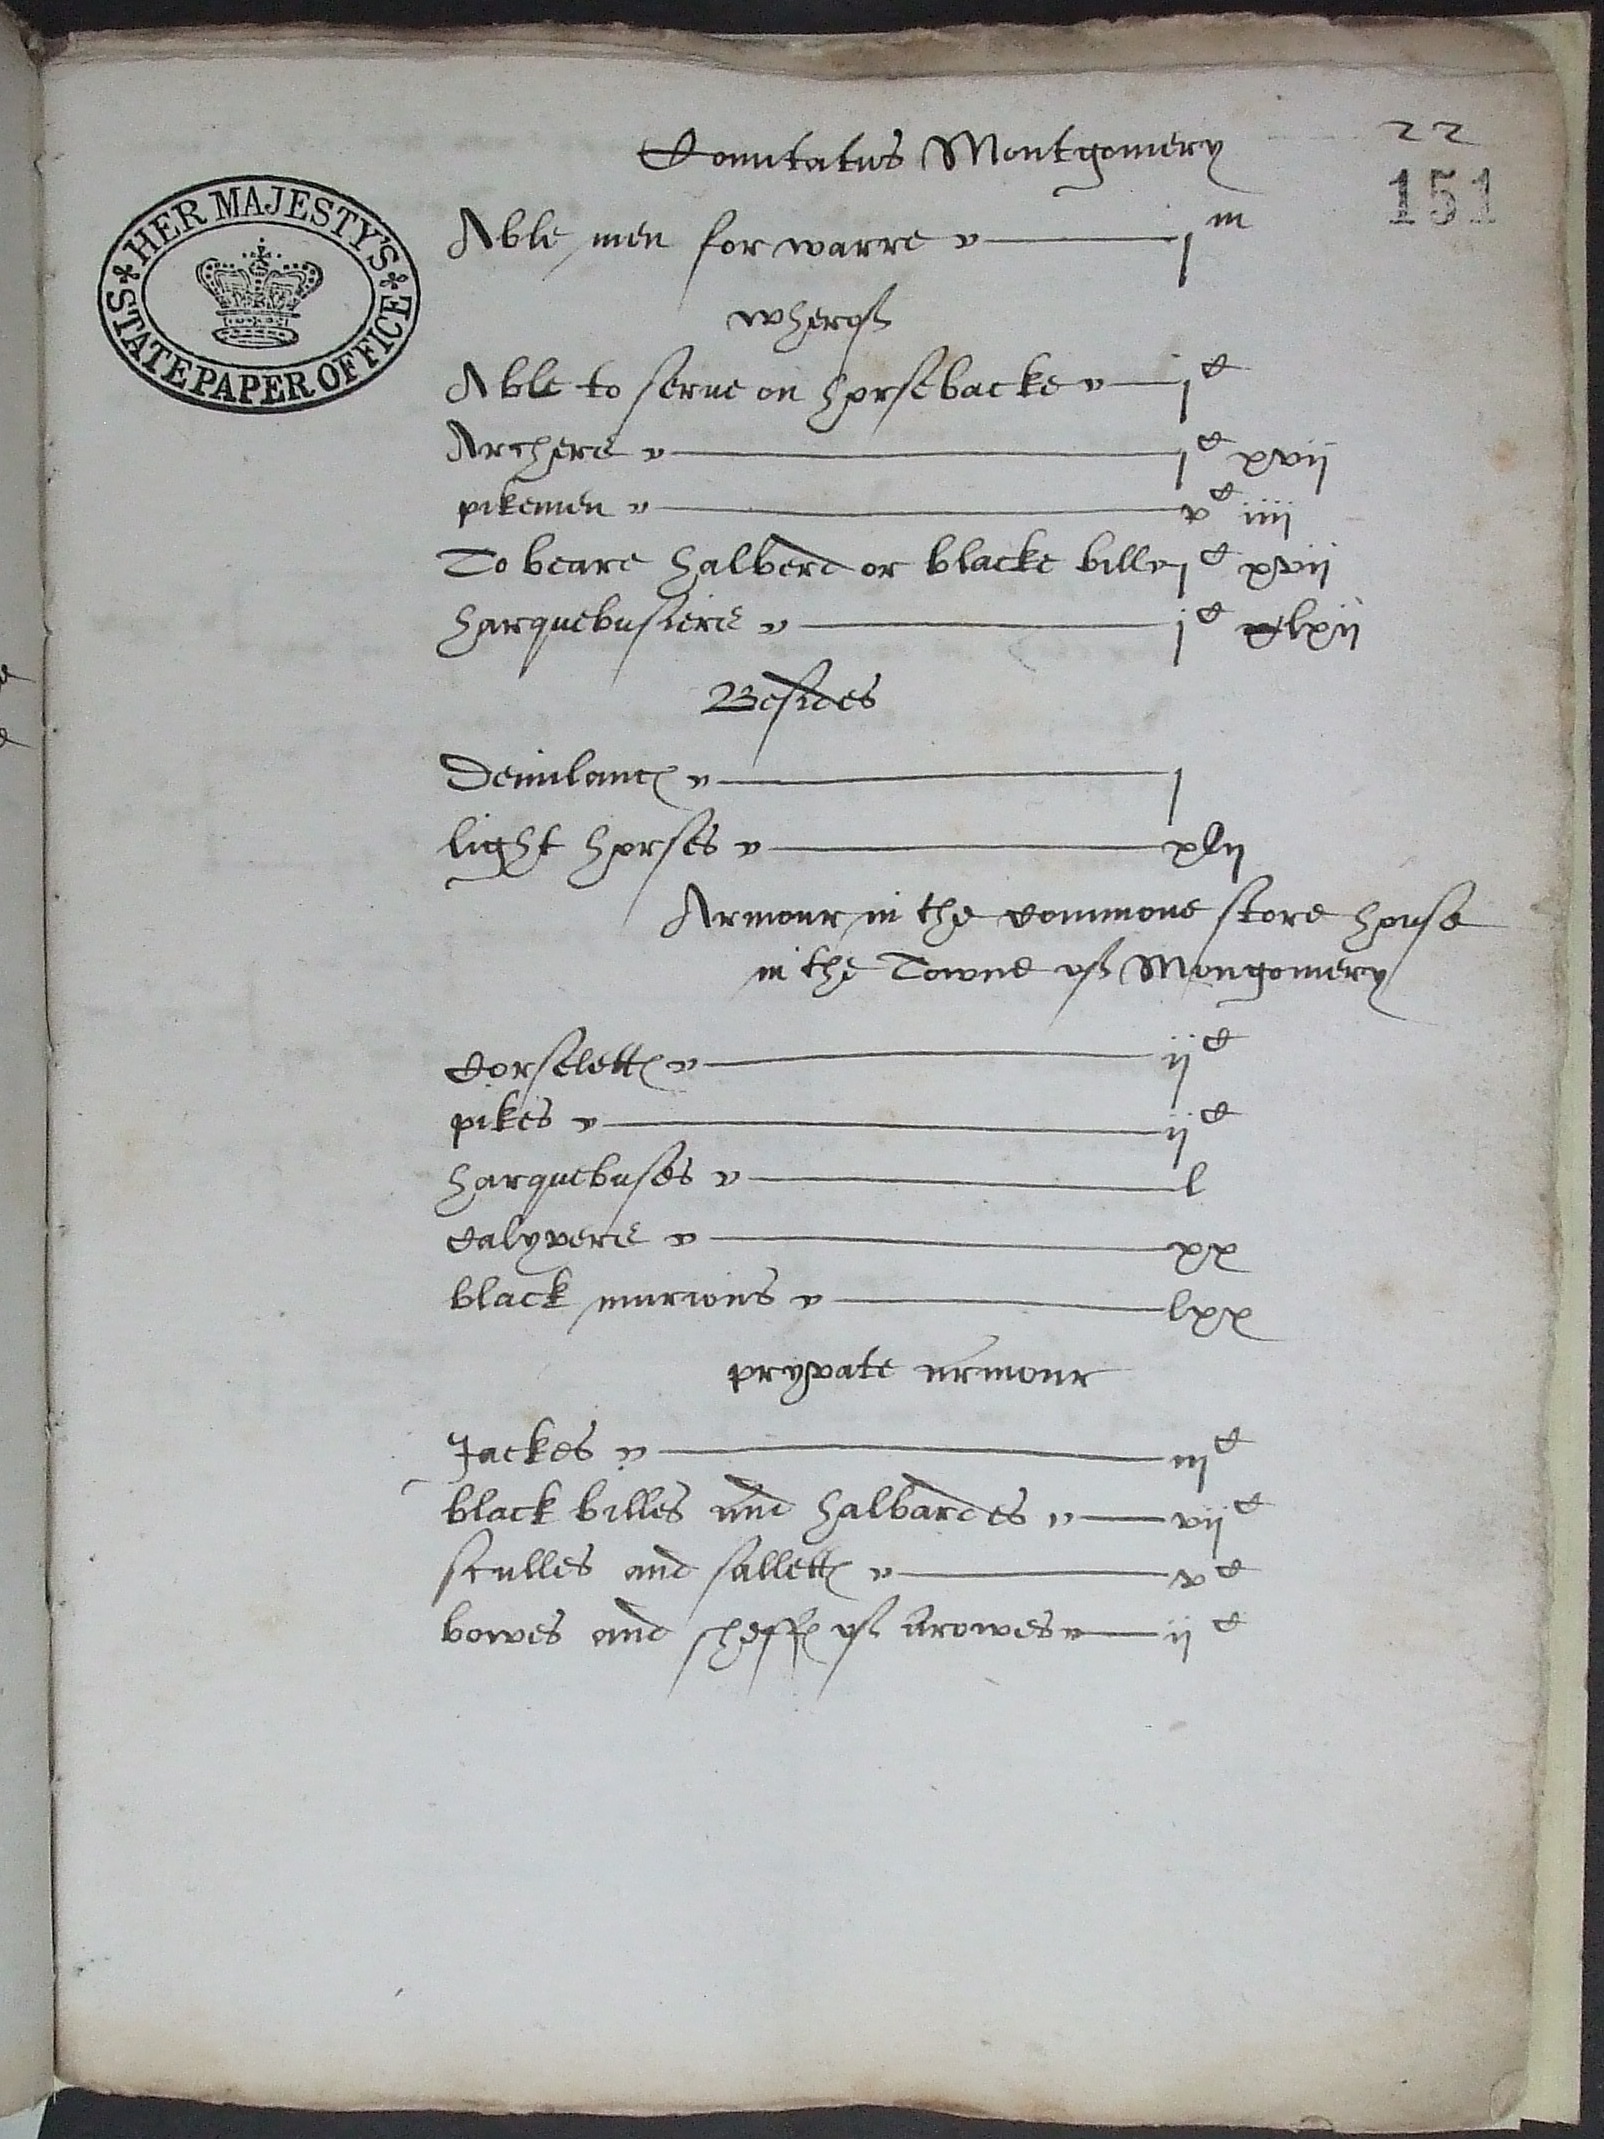 22
Comitatus Montgomery
151
HER MAJESTY'S
STATE PAPER OFFICE
Able men for warre j m
wherof
Able to serue on horsebacke j c
Archers j c xvij
pikemen v c iiij
To beare halberd or blacke bill j c xvij
harquebusiers j c lxij
Besides
Demilances j
light horses xlij
Armour in the commone store house
in the Towne of Montgomery
Corseletts ij c
pikes ij c
harquebuses l
Calyvers xx
black murions lxx
pryvate armour
Jackes iij c
black billes and halbardes vij c
sculles and salletts v c
bowes and sheffes of Arowes ij c